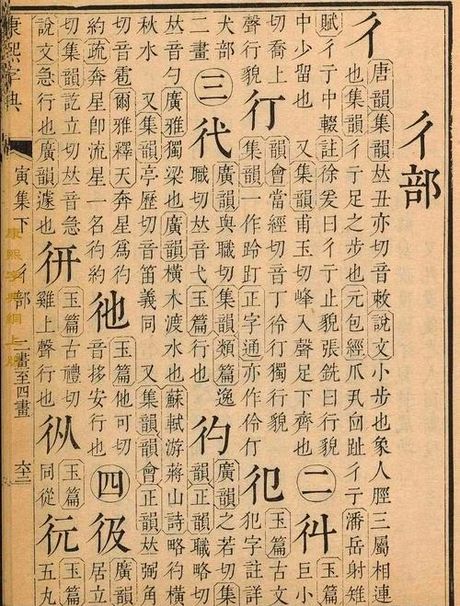 彳部
彳
唐韻集韻𠀤丑亦切音敕說文小步也象人脛三屬相連
也集韻彳亍足之步也元包經爪囟趾彳亍潘岳射雉
賦彳亍中輟註徐爰曰彳亍止貌張銑曰行貌
中少留也 又集韻甫玉切峰入聲足下齊也
二
玉篇
巨小
切喬上
聲行貌
㣔
韻會當經切音丁彾㣔獨行貌
集韻一作彾正字通亦作伶仃
玉篇古文
犯字註詳
犬部
二畫
三
廣韻與職切集韻類篇逸
職切𠀤音弋玉篇行也
彴
廣韻之若切集
韻正韻職略切
𠀤音勺廣雅獨梁也廣韻橫木渡水也蘇軾游蔣山詩略彴橫
秋水 又集韻亭歷切音笛義同 又集韻韻會正韻𠀤弼角
切音雹爾雅釋天奔星爲彴約
約疏奔星卽流星一名彴約
彵
玉篇他可切
音拸安行也
四
彶
廣韻
居立
切集韻訖立切𠀤音急
說文急行也廣韻遽也
玉篇古禮切
雞上聲行也
玉篇
同從
玉篇
五九
康熙字典
寅集下
彳部
二畫至四畫
康熙字典網上版